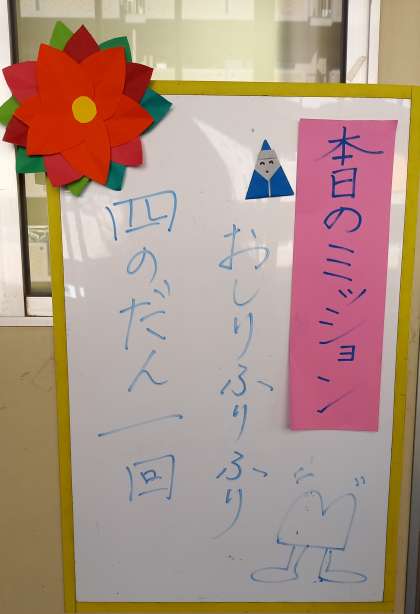 本日のミッション
おしりふりふり
四のだん一回